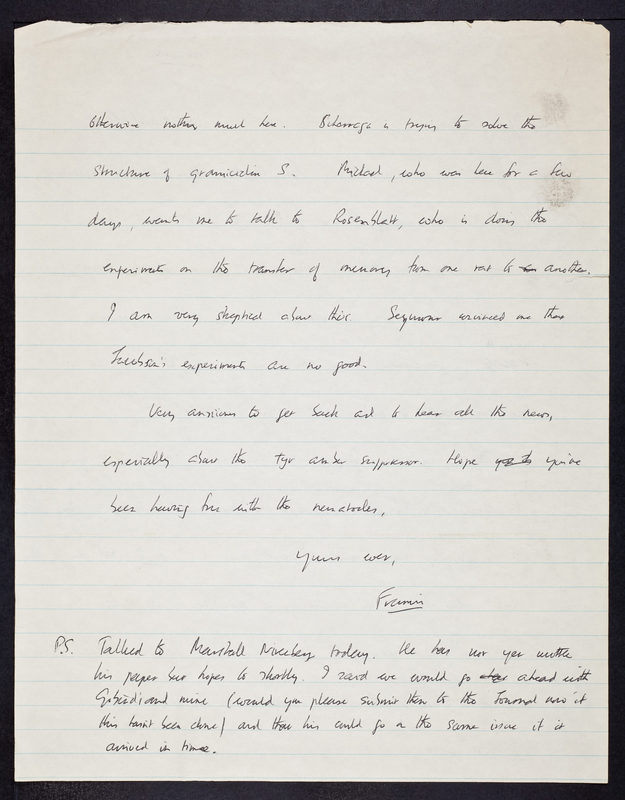 Otherwise nothing much here. is trying to solve the
structure of gramicidin S. Michael, who was here for a few
days, wants me to talk to Rosenblatt, who is doing the
experiments on the transfer of memory from one rat to another.
I am very skeptical about this. Seymour convinced me that
experiments are no good.
Very anxious to get back and to hear all the news,
especially about the tyr amber suppressor. Hope you've
been having fun with the nematodes,
Yours ever,
Francis
P.S. Talked to Marshall Nirenberg today. He has not yet written
his paper but hopes to shortly. I said we would go ahead with
and mine (would you please submit them to the Journal now if
this hasn't been done) and that his could go in the same issue if it
arrived in time.